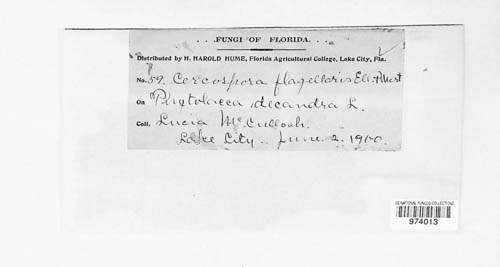 FUNGI OF FLORIDA.
Distributed by H. HAROLD HUME, Florida Agricultural College, Lake City, Fla.
No. 59. Cercospora flagellaris Ell. & Mart
On Phytolacca decandra L.
Coll. Lucia McCulloch.
Lake City. June 2. 1900.
US NATIONAL FUNGUS COLLECTIONS
974013